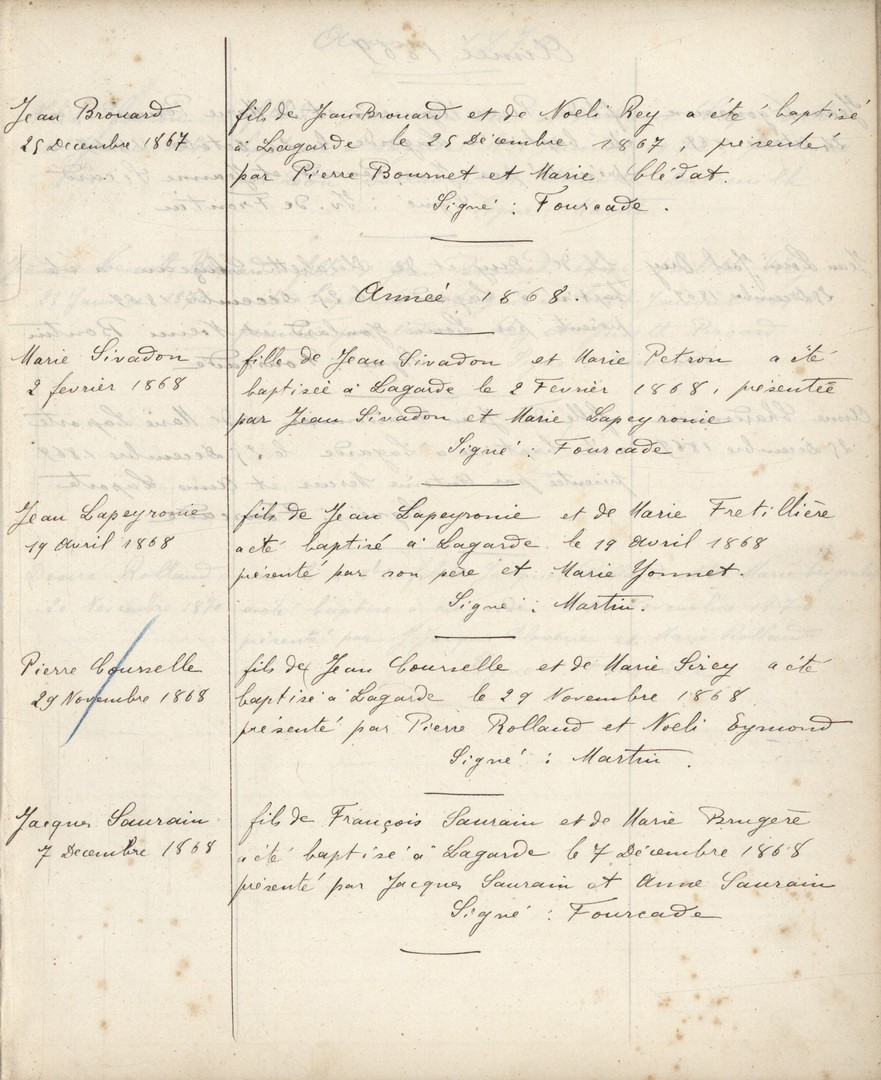 Jean Brouard
25 Decembre 1867
fils de Jean Brouard et de Noëli Rey a été baptisé
à Lagarde le 25 Décembre 1867, présenté
par Pierre Bournet et Marie blédat.
Signé : Fourcade.
Anneé 1868
Marie Sivadon
2 fevrier 1868
fille de Jean Sivadon et Marie Petron a été
baptiseé à Lagarde le 2 Fevrier 1868, présenteé
par Jean Sivadon et Marie Lapeyronie
Signé : Fourcade
Jean Lapeyronie
19 Avril 1868
fils de Jean Lapeyronie et de Marie Fretillière
a été baptisé à Lagarde le 19 Avril 1868
présenté par son père et Marie Yonnet.
Signé : Martin.
Pierre Courselle
29 Novembre 1868
fils de Jean Courselle et de Marie Sirey a été
baptisé à Lagarde le 29 Novembre 1868
présenté par Pierre Rolland et Noëli Eymond
Signé : Martin.
Jacques Saurain
7 Decembre 1868
fils de François Saurain et de Marie Brugère
a été baptisé à Lagarde le 7 Décembre 1868
présenté par Jacques Saurain et Anne Saurain
Signé : Fourcade